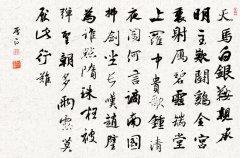 天馬白銀鞍親承
明主歡鬪鷄金宮
裏射雁碧雲端堂
上羅中貴歌鐘清
夜闌何言謫南國
拂劍坐長嘆趙璧
為誰點隋珠枉被
彈聖朝多雨露莫
厭此行難